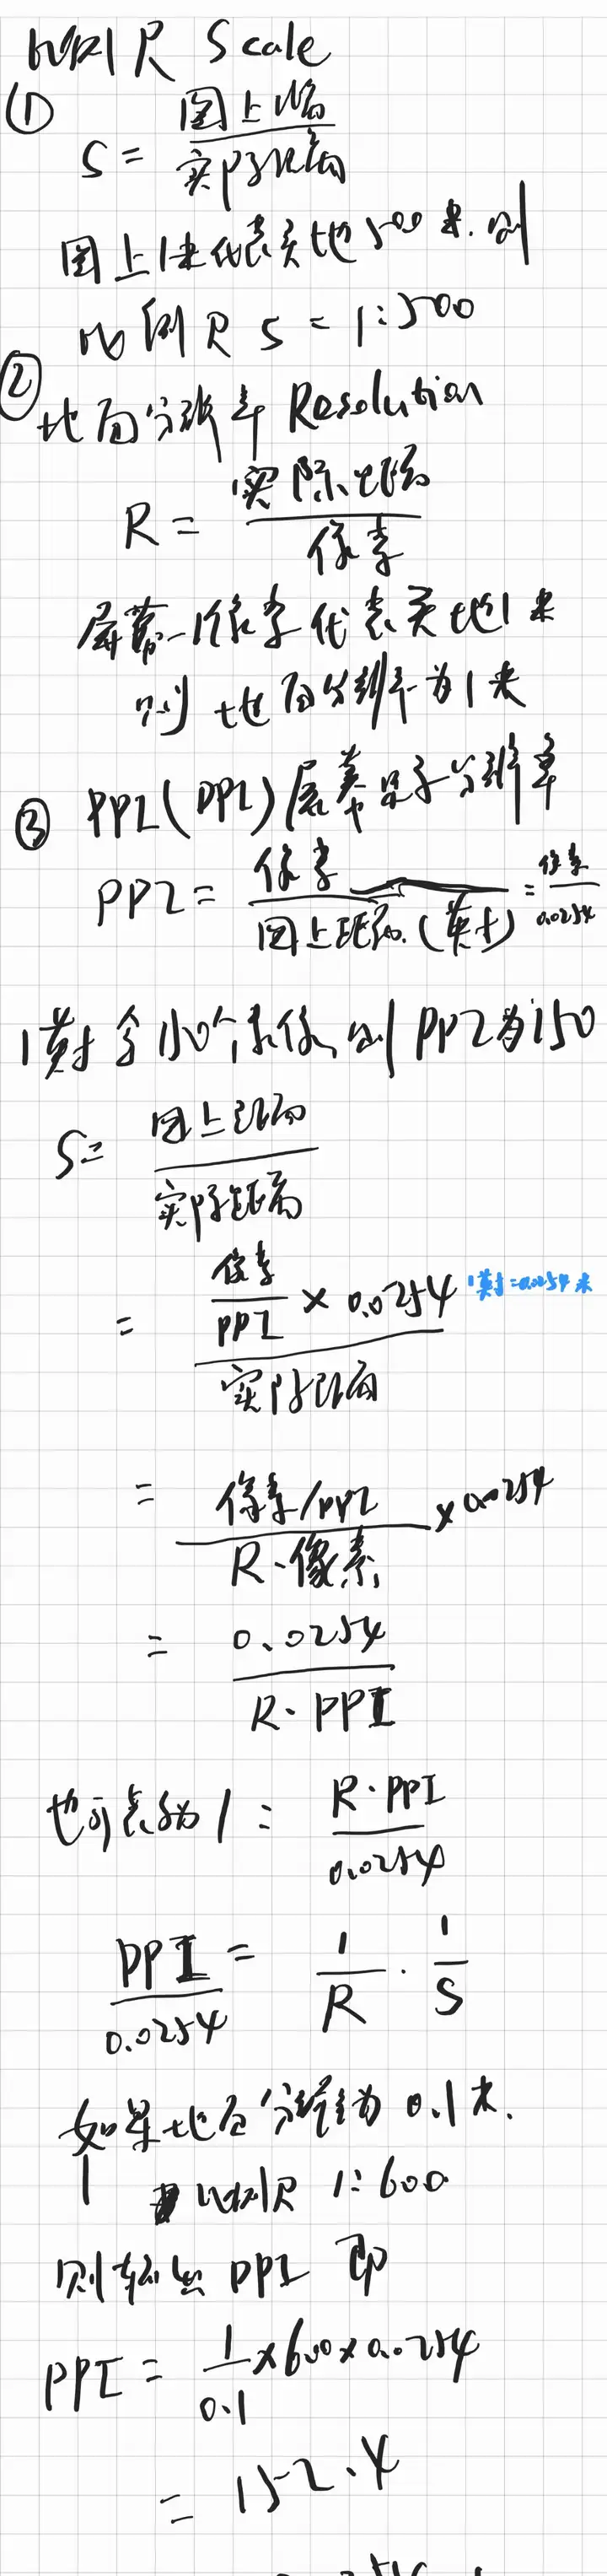 比例尺 Scale
① S = 图上距离 / 实际距离
图上1米代表实地500米.则
比例尺 S = 1:500
② 地面分辨率 Resolution
R = 实际距离 / 像素
屏幕一个像素代表实地1米
则 地面分辨率为1米
③ PPI(DPI)屏幕显示分辨率
PPI = 像素 / 图上距离.(英寸) = 像素 / 0.0254
1英寸含150个像素,则PPI为150
S = 图上距离 / 实际距离
= 像素 / PPI × 0.0254 / 实际距离 1英寸=0.0254米
= 像素/PPI / R·像素 × 0.0254
= 0.0254 / R·PPI
也可表示为 1 : R·PPI / 0.0254
PPI / 0.0254 = 1 / R · 1 / S
如果地面分辨率为 0.1米.
比例尺 1:600
则输出 DPI 即
PPI = 1 / 0.1 × 600 × 0.0254
= 152.4